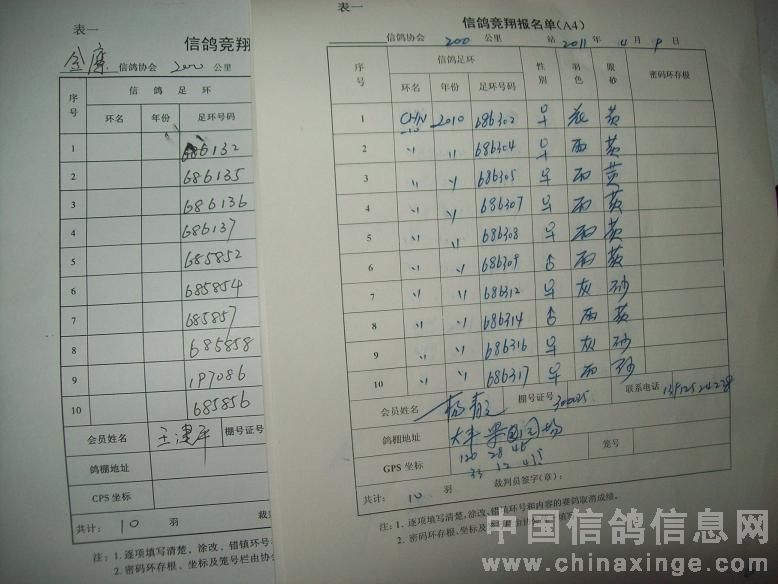 表一
信鸽竞翔
金鹰 信鸽协会 200 公里
序号 信鸽足环
环名 年份 足环号码
1 686132
2 686135
3 686136
4 686137
5 685852
6 685854
7 685857
8 685858
9 197086
10 685856
会员姓名 王建平 棚号证号
鸽棚地址
CPS 坐标
共计: 10 羽 裁
注: 1. 逐项填写清楚, 涂改、错镇环号
2. 密码环存根、坐标及笼号栏由协
表一
信鸽竞翔报名单(A4)
信鸽协会 200 公里 站 2011 年 4 月 9 日
序号 信鸽足环 性别 羽色 眼砂 密码环存根
环名 年份 足环号码
1 CHN 2010 686302 ♀ 花 黄
2 〃 〃 686304 ♀ 雨 黄
3 〃 〃 686305 ♀ 雨 黄
4 〃 〃 686307 ♀ 雨 黄
5 〃 〃 686308 ♀ 雨 黄
6 〃 〃 686309 ♂ 雨 黄
7 〃 〃 686312 ♀ 灰 砂
8 〃 〃 686314 ♂ 雨 黄
9 〃 〃 686316 ♀ 灰 砂
10 〃 〃 686317 ♀ 雨 砂
会员姓名 杨 棚号证号 联系电话
鸽棚地址 大丰 笼号
GPS 坐标 120 28 46
33 12
共计: 10 羽 裁判员签字(章):
注: 1. 逐项填写清楚, 涂改、错镇环号和内容的赛鸽取消成绩。
2. 密码环存根、坐标及笼号栏由协
中国信鸽信息网
www.chinaxinge.com